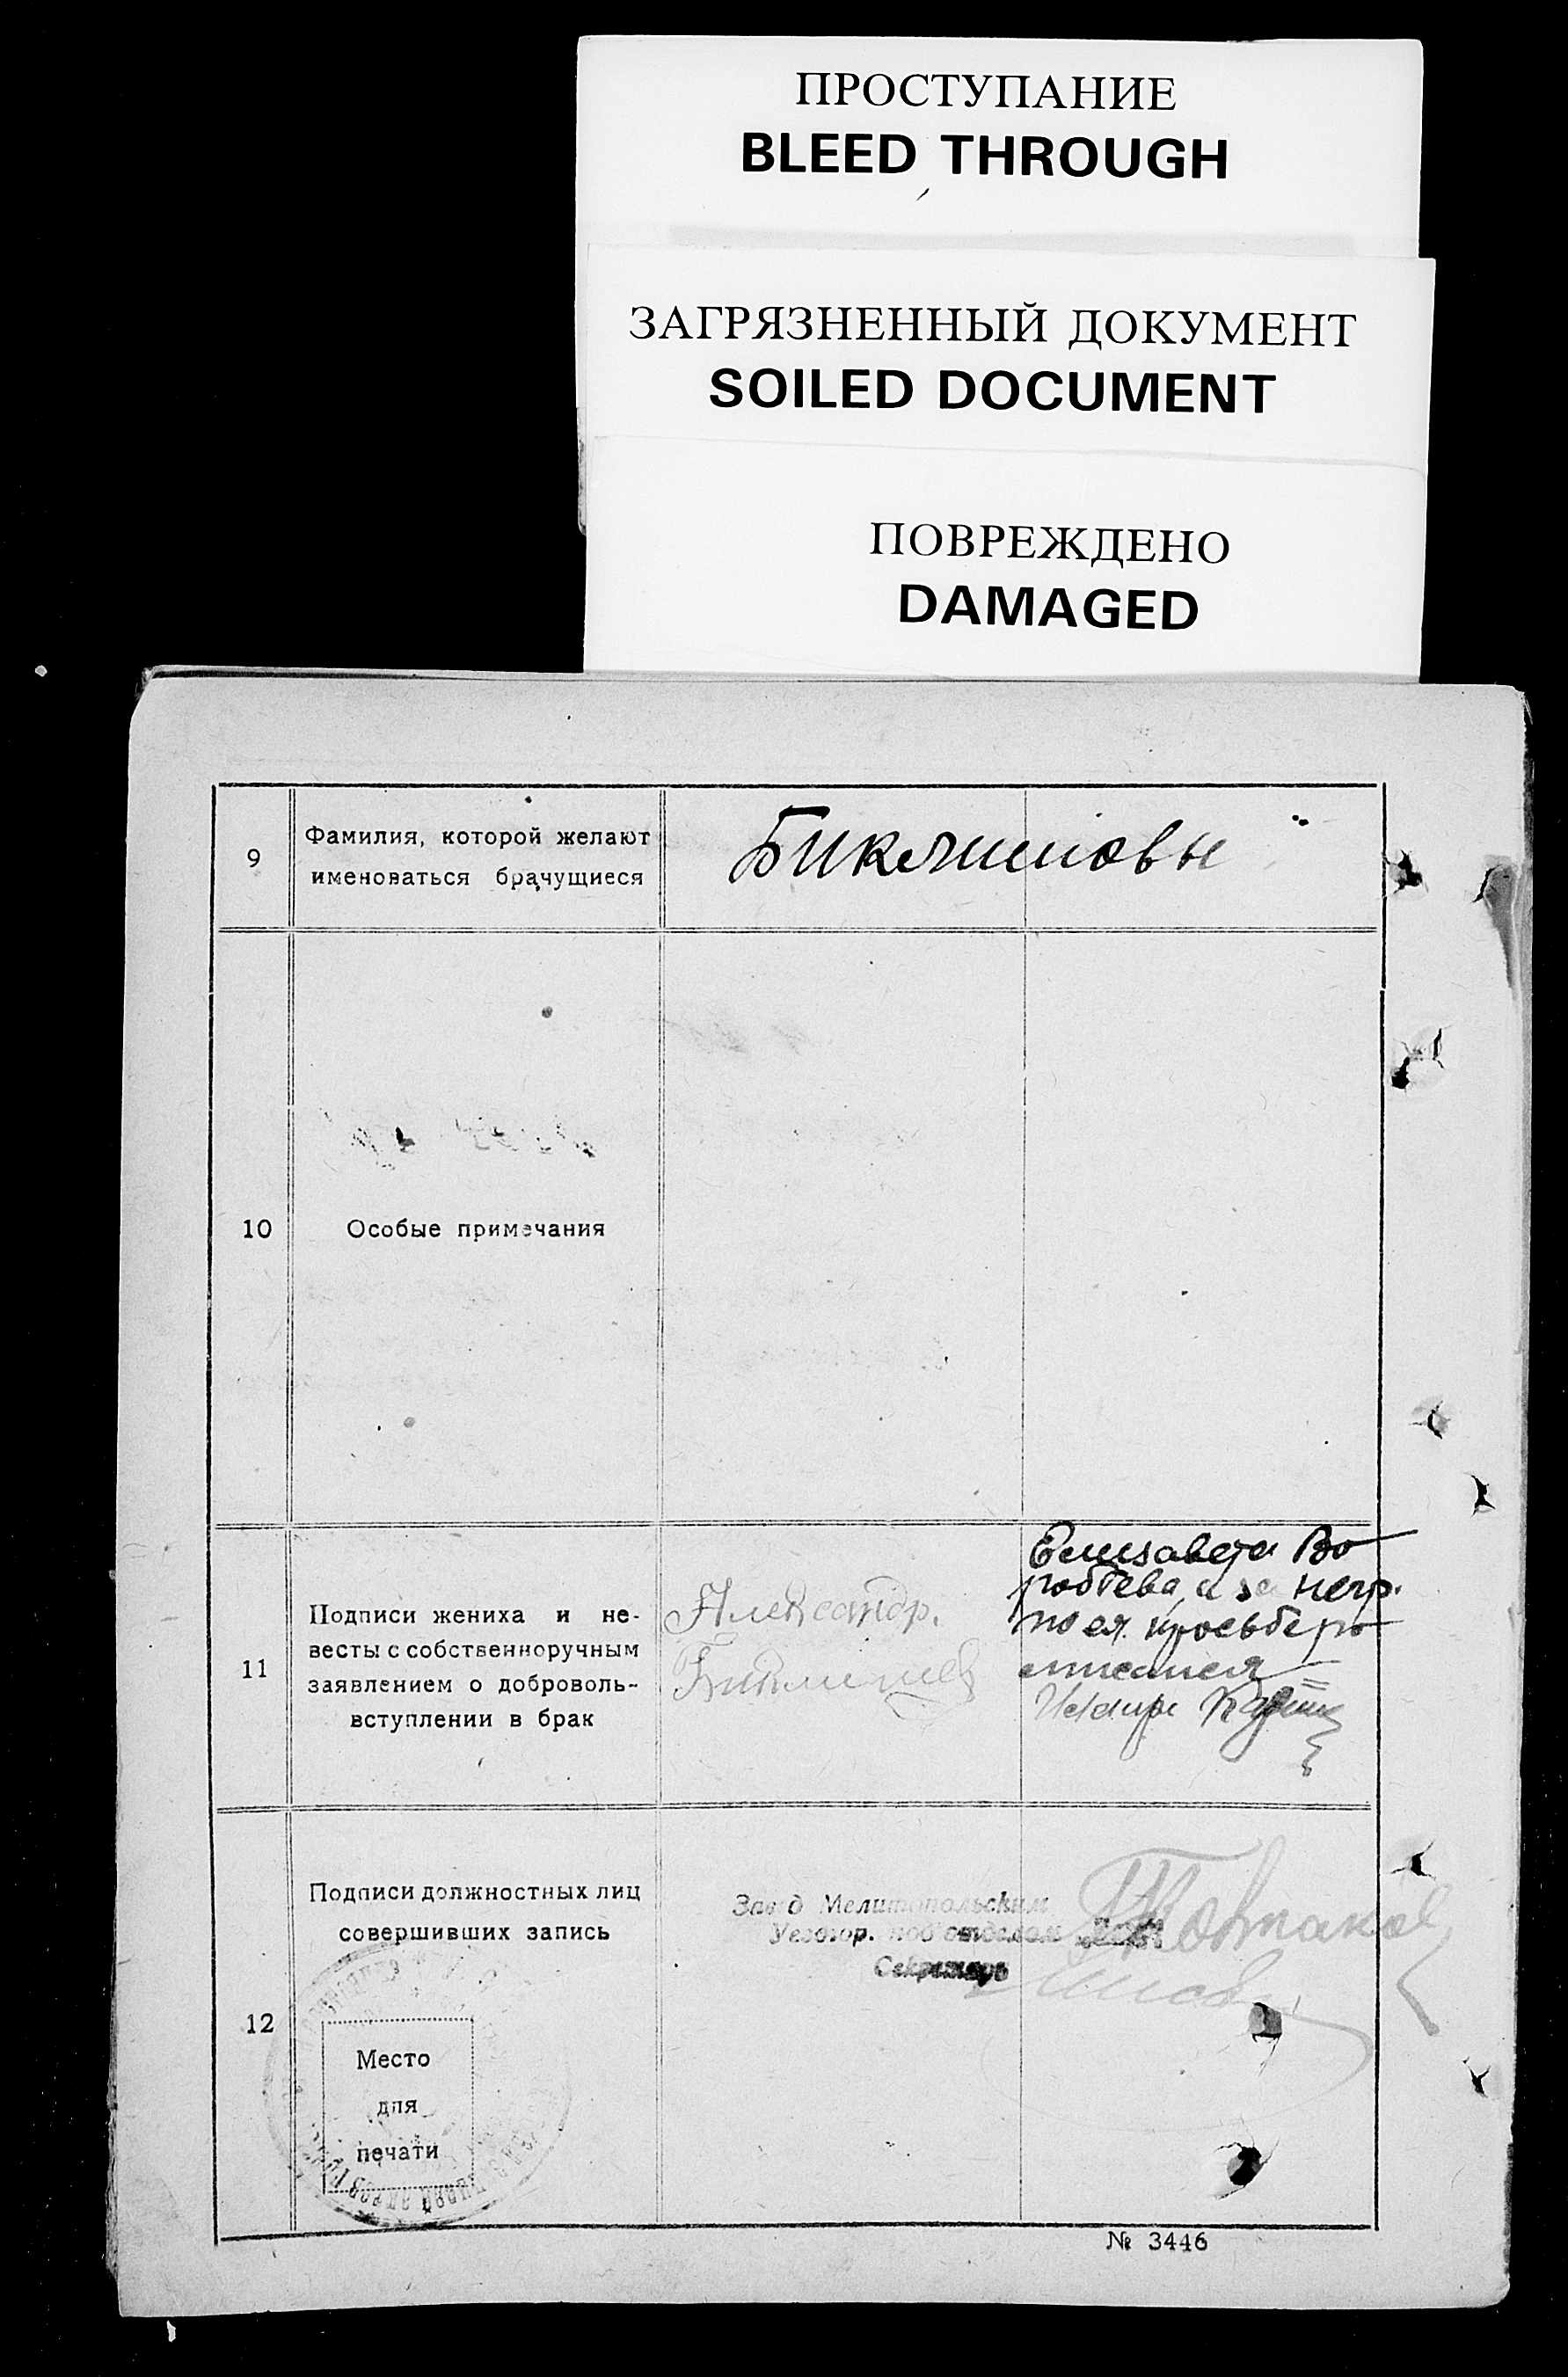 ПРОСТУПАНИЕ
BLEED THROUGH
ЗАГРЯЗНЕННЫЙ ДОКУМЕНТ
SOILED DOCUMENT
ПОВРЕЖДЕНО
DAMAGED
9
Фамилия, которой желают
именоваться брачущиеся
10
Особые примечания
11
Подписи жениха и не-
весты с собственноручным
заявлением о доброволь-
вступлении в брак
Александр
Елизавета Во
робьева, а за негр.
по ея просьбе ро
12
Подписи должностных лиц
совершивших запись
Завед Мелитопольским
Уездгор. подотделом
Секретарь
Место
для
печати
№ 3446